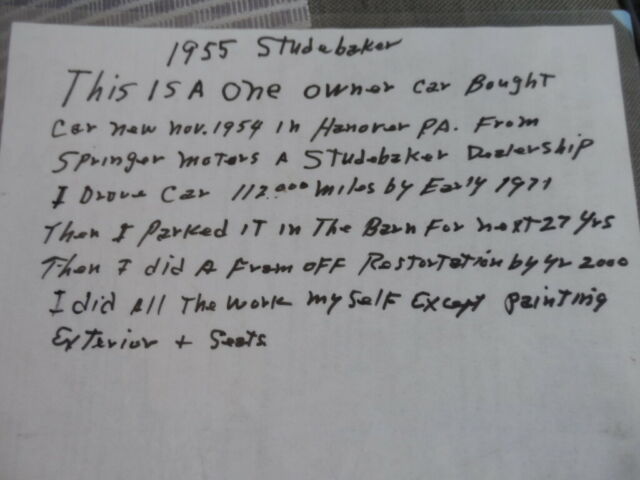 1955 Studebaker
This IS A one owner car Bought
Car new nov. 1954 in Hanover PA. From
Springer Motors A Studebaker Dealership
I Drove Car 112.000 miles by Early 1971
Then I Parked IT in The Barn For next 27 yrs
Then I did A Fram off Restortation by yr 2000
I did All The work my self Except painting
Exterior + Seats